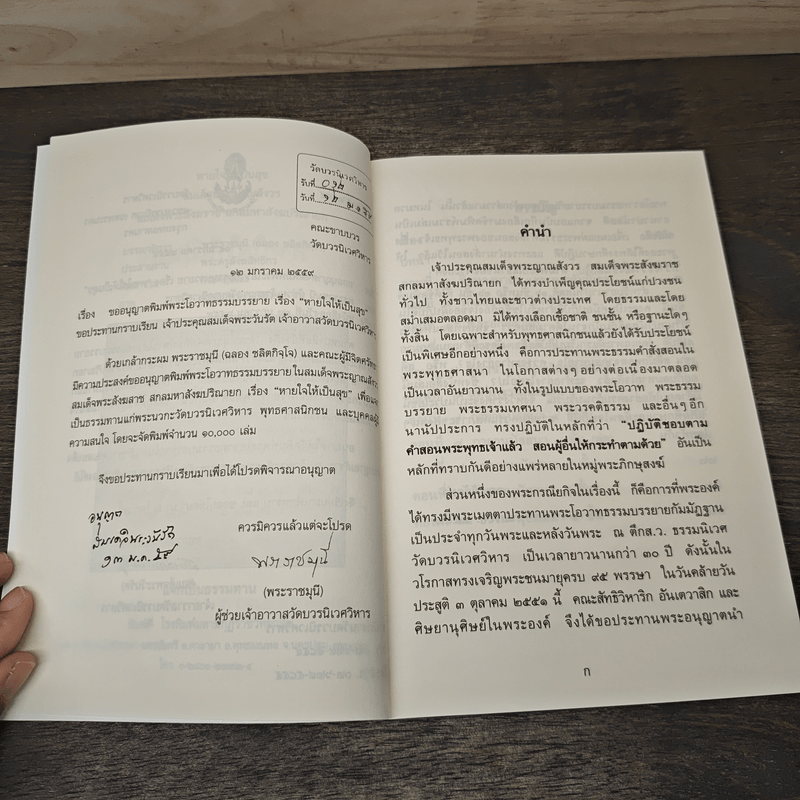 วัดบวรนิเวศวิหาร
รับที่
วันที่
คณะขาบบวร
วัดบวรนิเวศวิหาร
๑๒ มกราคม ๒๕๕๙
เรื่อง ขออนุญาตพิมพ์พระโอวาทธรรมบรรยาย เรื่อง "หายใจให้เป็นสุข"
ขอประทานกราบเรียน เจ้าประคุณสมเด็จพระวันรัต เจ้าอาวาสวัดบวรนิเวศวิหาร
ด้วยเกล้ากระผม พระราชมุนี (ฉลอง ชลิตกิจฺโจ) และคณะผู้มีจิตศรัทธา
มีความประสงค์ขออนุญาตพิมพ์พระโอวาทธรรมบรรยาย ในสมเด็จพระญาณสังวร
สมเด็จพระสังฆราช สกลมหาสังฆปริณายก เรื่อง "หายใจให้เป็นสุข" เพื่อ
เป็นธรรมทานแก่พระนวกะวัดบวรนิเวศวิหาร พุทธศาสนิกชน และบุคคลผู้
ความสนใจ โดยจะจัดพิมพ์จำนวน ๑๐,๐๐๐ เล่ม
จึงขอประทานกราบเรียนมาเพื่อได้โปรดพิจารณาอนุญาต
อนุญาต
สมเด็จพระวันรัต
๑๓ ม.ค. ๕๙
ควรมิควรแล้วแต่จะโปรด
พระราชมุนี
(พระราชมุนี)
ผู้ช่วยเจ้าอาวาสวัดบวรนิเวศวิหาร
คำนำ
เจ้าประคุณสมเด็จพระญาณสังวร สมเด็จพระสังฆราช
สกลมหาสังฆปริณายก ได้ทรงบำเพ็ญคุณประโยชน์แก่ปวงชน
ทั่วไป ทั้งชาวไทยและชาวต่างประเทศ โดยธรรมและโดย
สม่ำเสมอตลอดมา มิได้ทรงเลือกเชื้อชาติ ชนชั้น หรือฐานะใดๆ
ทั้งสิ้น โดยเฉพาะสำหรับพุทธศาสนิกชนแล้วยังได้รับประโยชน์
เป็นพิเศษอีกอย่างหนึ่ง คือการประทานพระธรรมคำสั่งสอนใน
พระพุทธศาสนา ในโอกาสต่างๆ อย่างต่อเนื่องมาตลอด
เป็นเวลาอันยาวนาน ทั้งในรูปแบบของพระโอวาท พระธรรม
บรรยาย พระธรรมเทศนา พระวรคติธรรม และอื่นๆ อีก
นานัปประการ ทรงปฏิบัติในหลักที่ว่า "ปฏิบัติชอบตาม
คำสอนพระพุทธเจ้าแล้ว สอนผู้อื่นให้กระทำตามด้วย" อันเป็น
หลักที่ทราบกันดีอย่างแพร่หลายในหมู่พระภิกษุสงฆ์
ส่วนหนึ่งของพระกรณียกิจในเรื่องนี้ ก็คือการที่พระองค์
ได้ทรงมีพระเมตตาประทานพระโอวาทธรรมบรรยายกัมมัฏฐาน
เป็นประจำทุกวันพระและหลังวันพระ ณ ตึกส.ว. ธรรมนิเวศ
วัดบวรนิเวศวิหาร เป็นเวลายาวนานกว่า ๓๐ ปี ดังนั้นใน
วโรกาสทรงเจริญพระชนมายุครบ ๙๕ พรรษา ในวันคล้ายวัน
ประสูติ ๓ ตุลาคม ๒๕๕๑ นี้ คณะสัทธิวิหาริก อันเตวาสิก และ
ศิษยานุศิษย์ในพระองค์ จึงได้ขอประทานพระอนุญาตนำ
ก